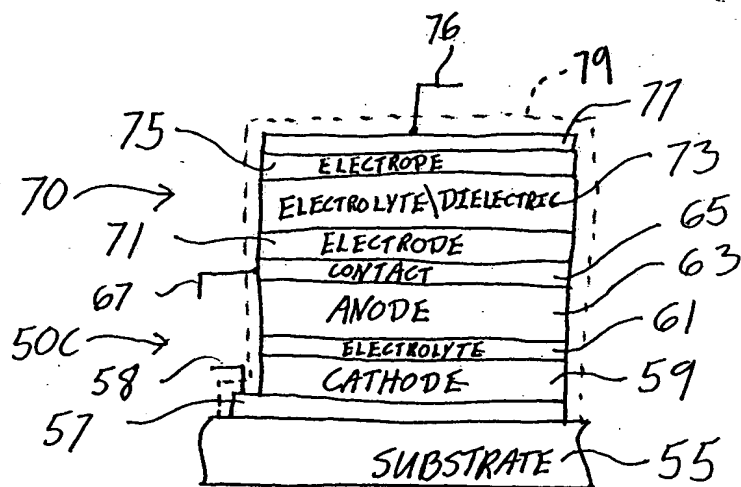 76
79
77
75
ELECTROPE
73
70
ELECTROLYTE\DIELECTRIC
71
ELECTRODE
65
CONTACT
63
67
ANODE
61
50C
ELECTROLYTE
58
CATHODE
59
57
SUBSTRATE
55